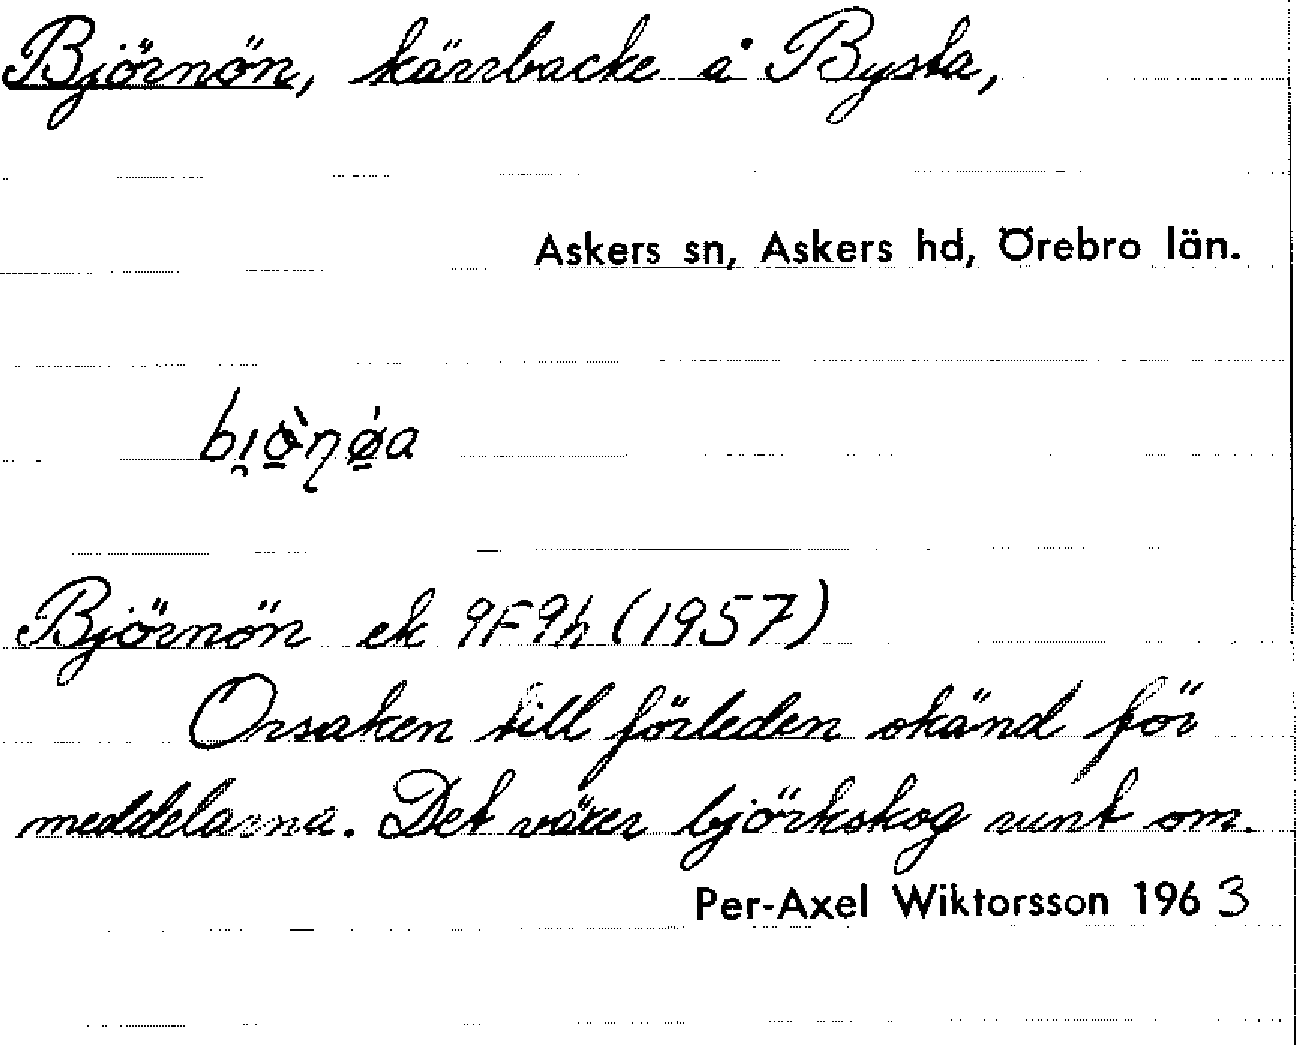 Björnön, kärrbacke å Bysta,
Askers sn, Askers hd, Örebro län.
bi̯ò̠ɳǿ̠a
Björnön ek 9F9h (1957)
Orsaken till förleden okänd för
meddelarna. Det växer björkskog runt om.
Per-Axel Wiktorsson 1963